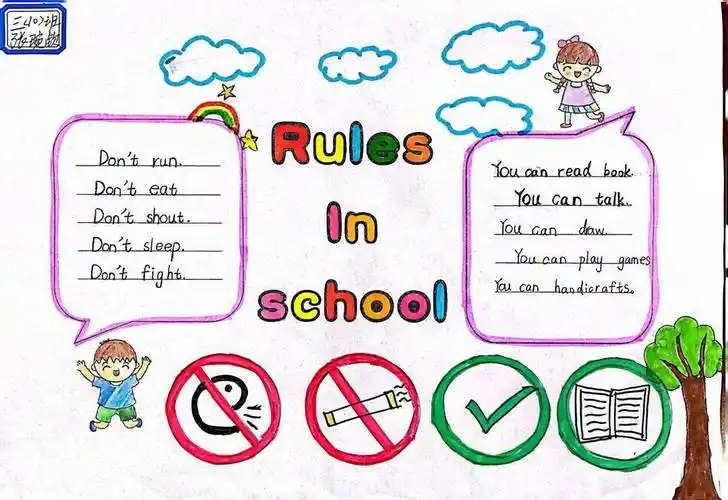 三(10)班
Rules
In
school
Don't run.
Don't eat
Don't shout.
Don't sleep.
Don't fight.
You can read book.
You can talk.
You can draw.
You can play games
You can handicrafts.